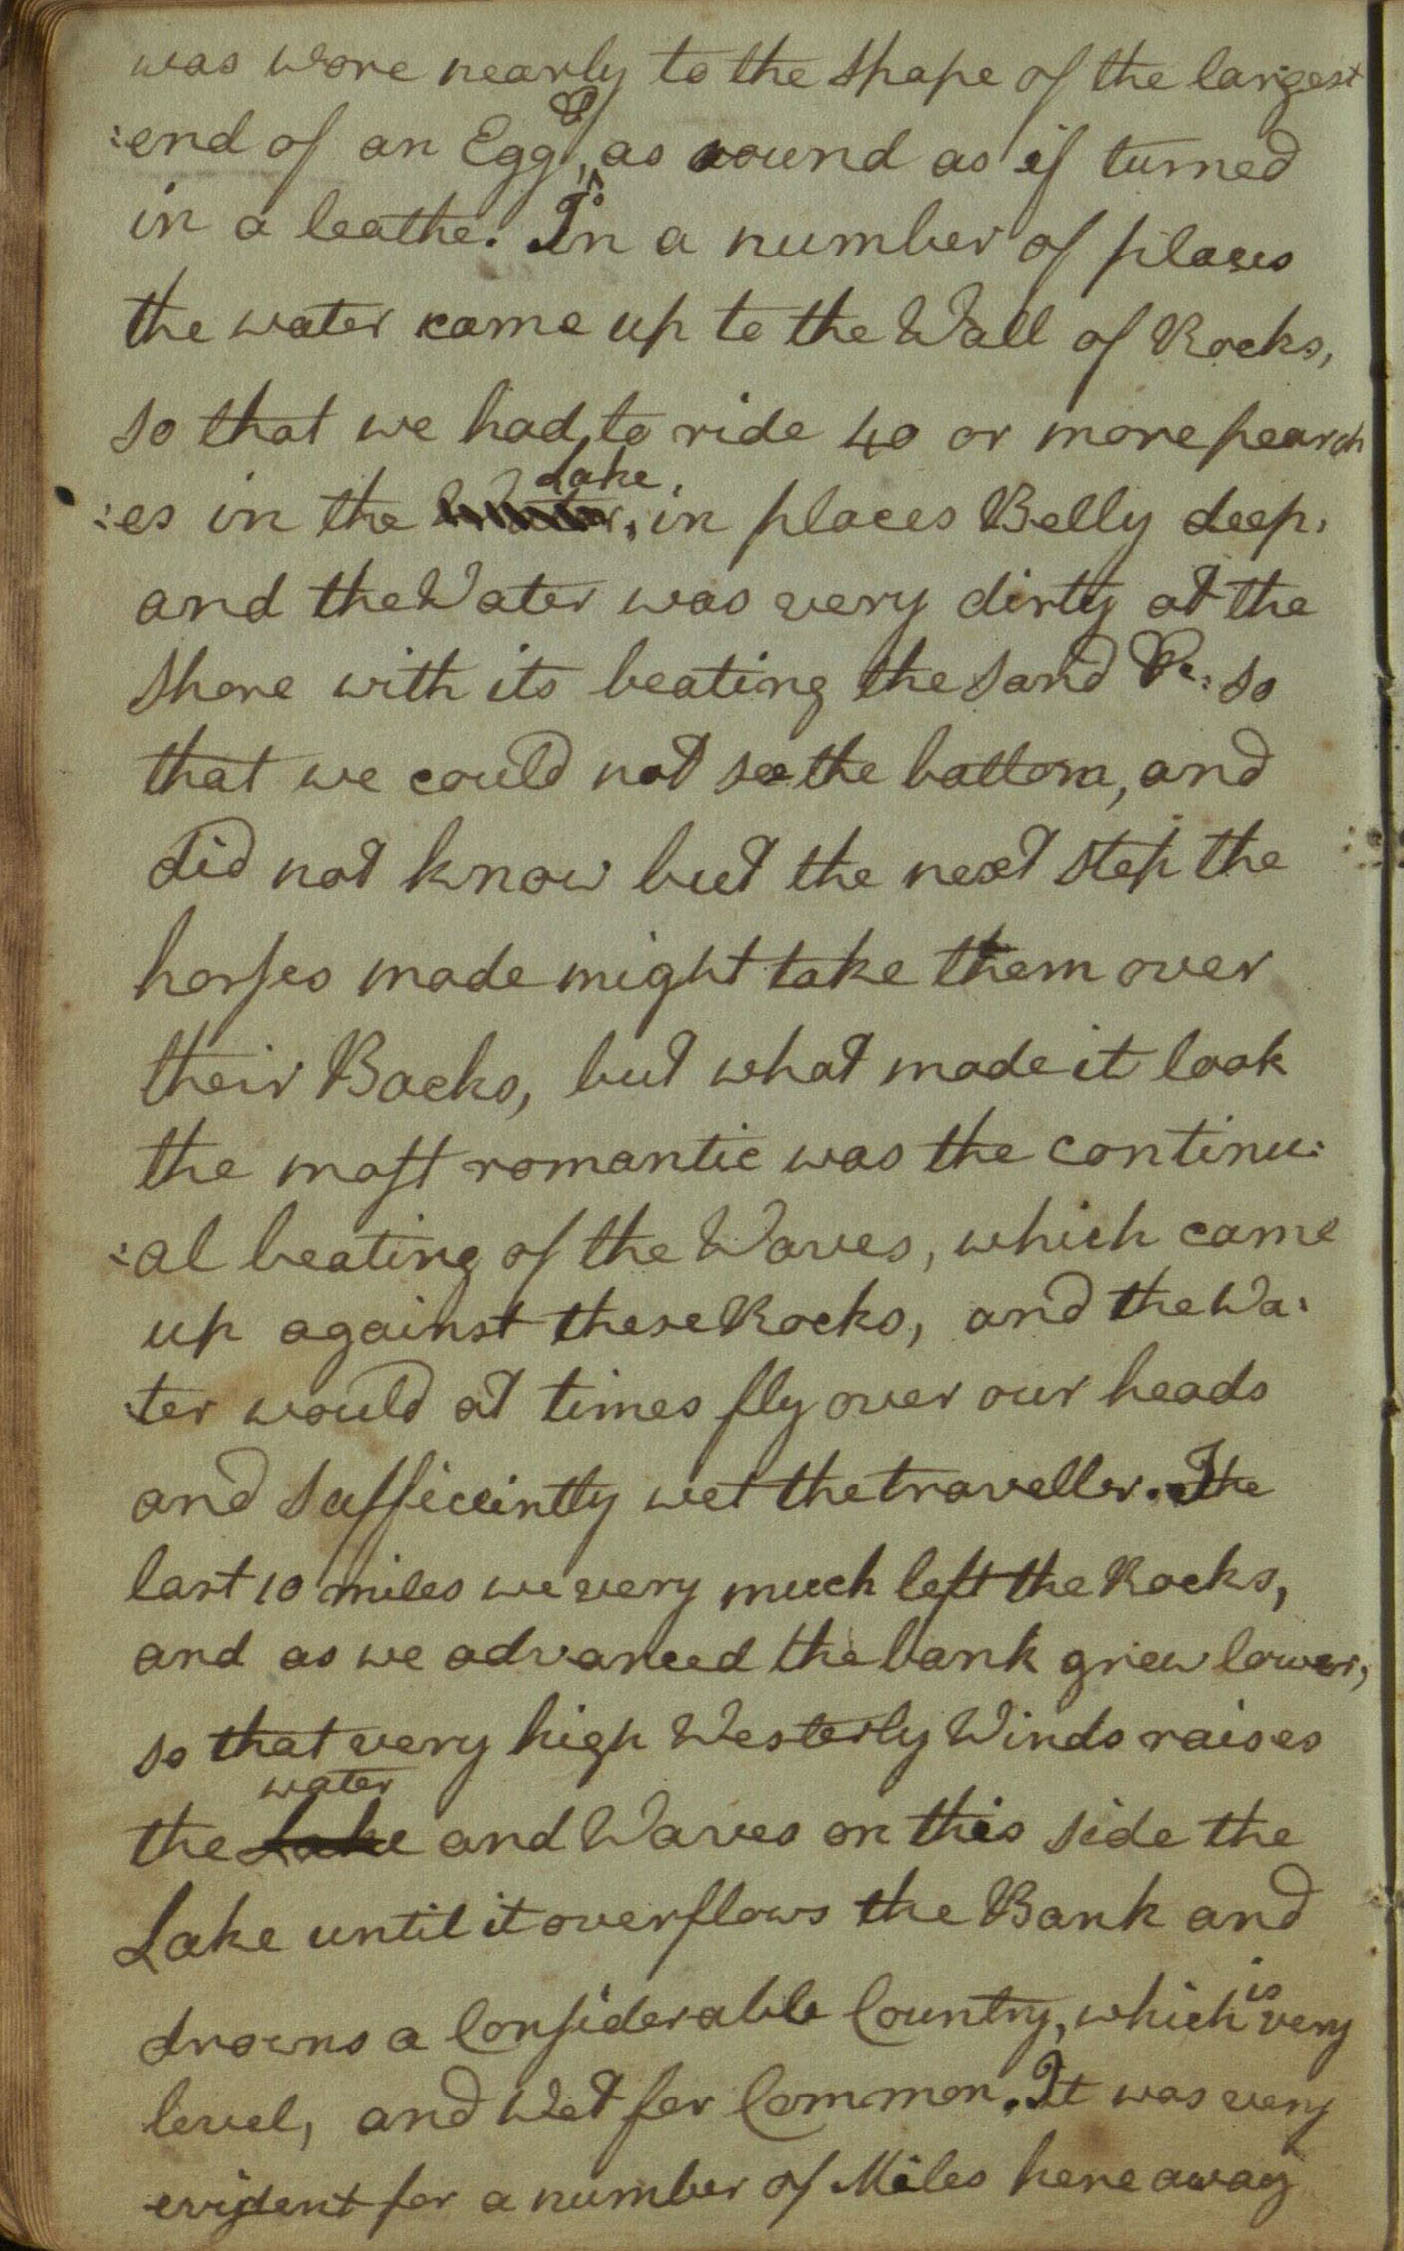 was wore nearly to the shape of the largest
:end of an Egg, & as round as if turned
in a leathe. In a number of places
the water came up to the Wall of Rocks,
so that we had to ride 40 or more pearch
:es in the Lake, in places Belly deep,
and the Water was very dirty at the
shore with its beating the sand &c: so
that we could not see the bottom, and
did not know but the next step the
horses made might take them over
their Backs, but what made it look
the most romantic was the continu:
:al beating of the Waves, which came
up against these Rocks, and the Wa:
:ter would at times fly over our heads
and sufficiintly wet the traveller. The
last 10 miles we very much left the Rocks,
and as we advanced the bank grew lower,
so that very high Westerly Winds raises
water
the Lake and Waves on this side the
Lake until it overflows the Bank and
drowns a Considerable Country, which is very
level, and Wet for Common. It was very
evident for a number of Miles here away